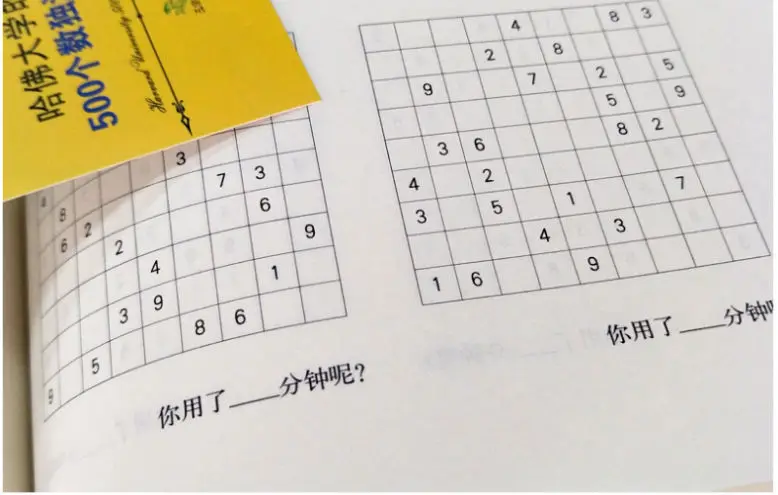 哈佛大学
500个数独
Harvard University
8 3
6 2 7 3
2 6
4 9
3 9 1
9 5 8 6
你用了____分钟呢?
4 8 3
2 8
9 7 2 5
5 9
3 6 8 2
4 2
3 5 1 7
4 3
1 6 9
你用了____分钟